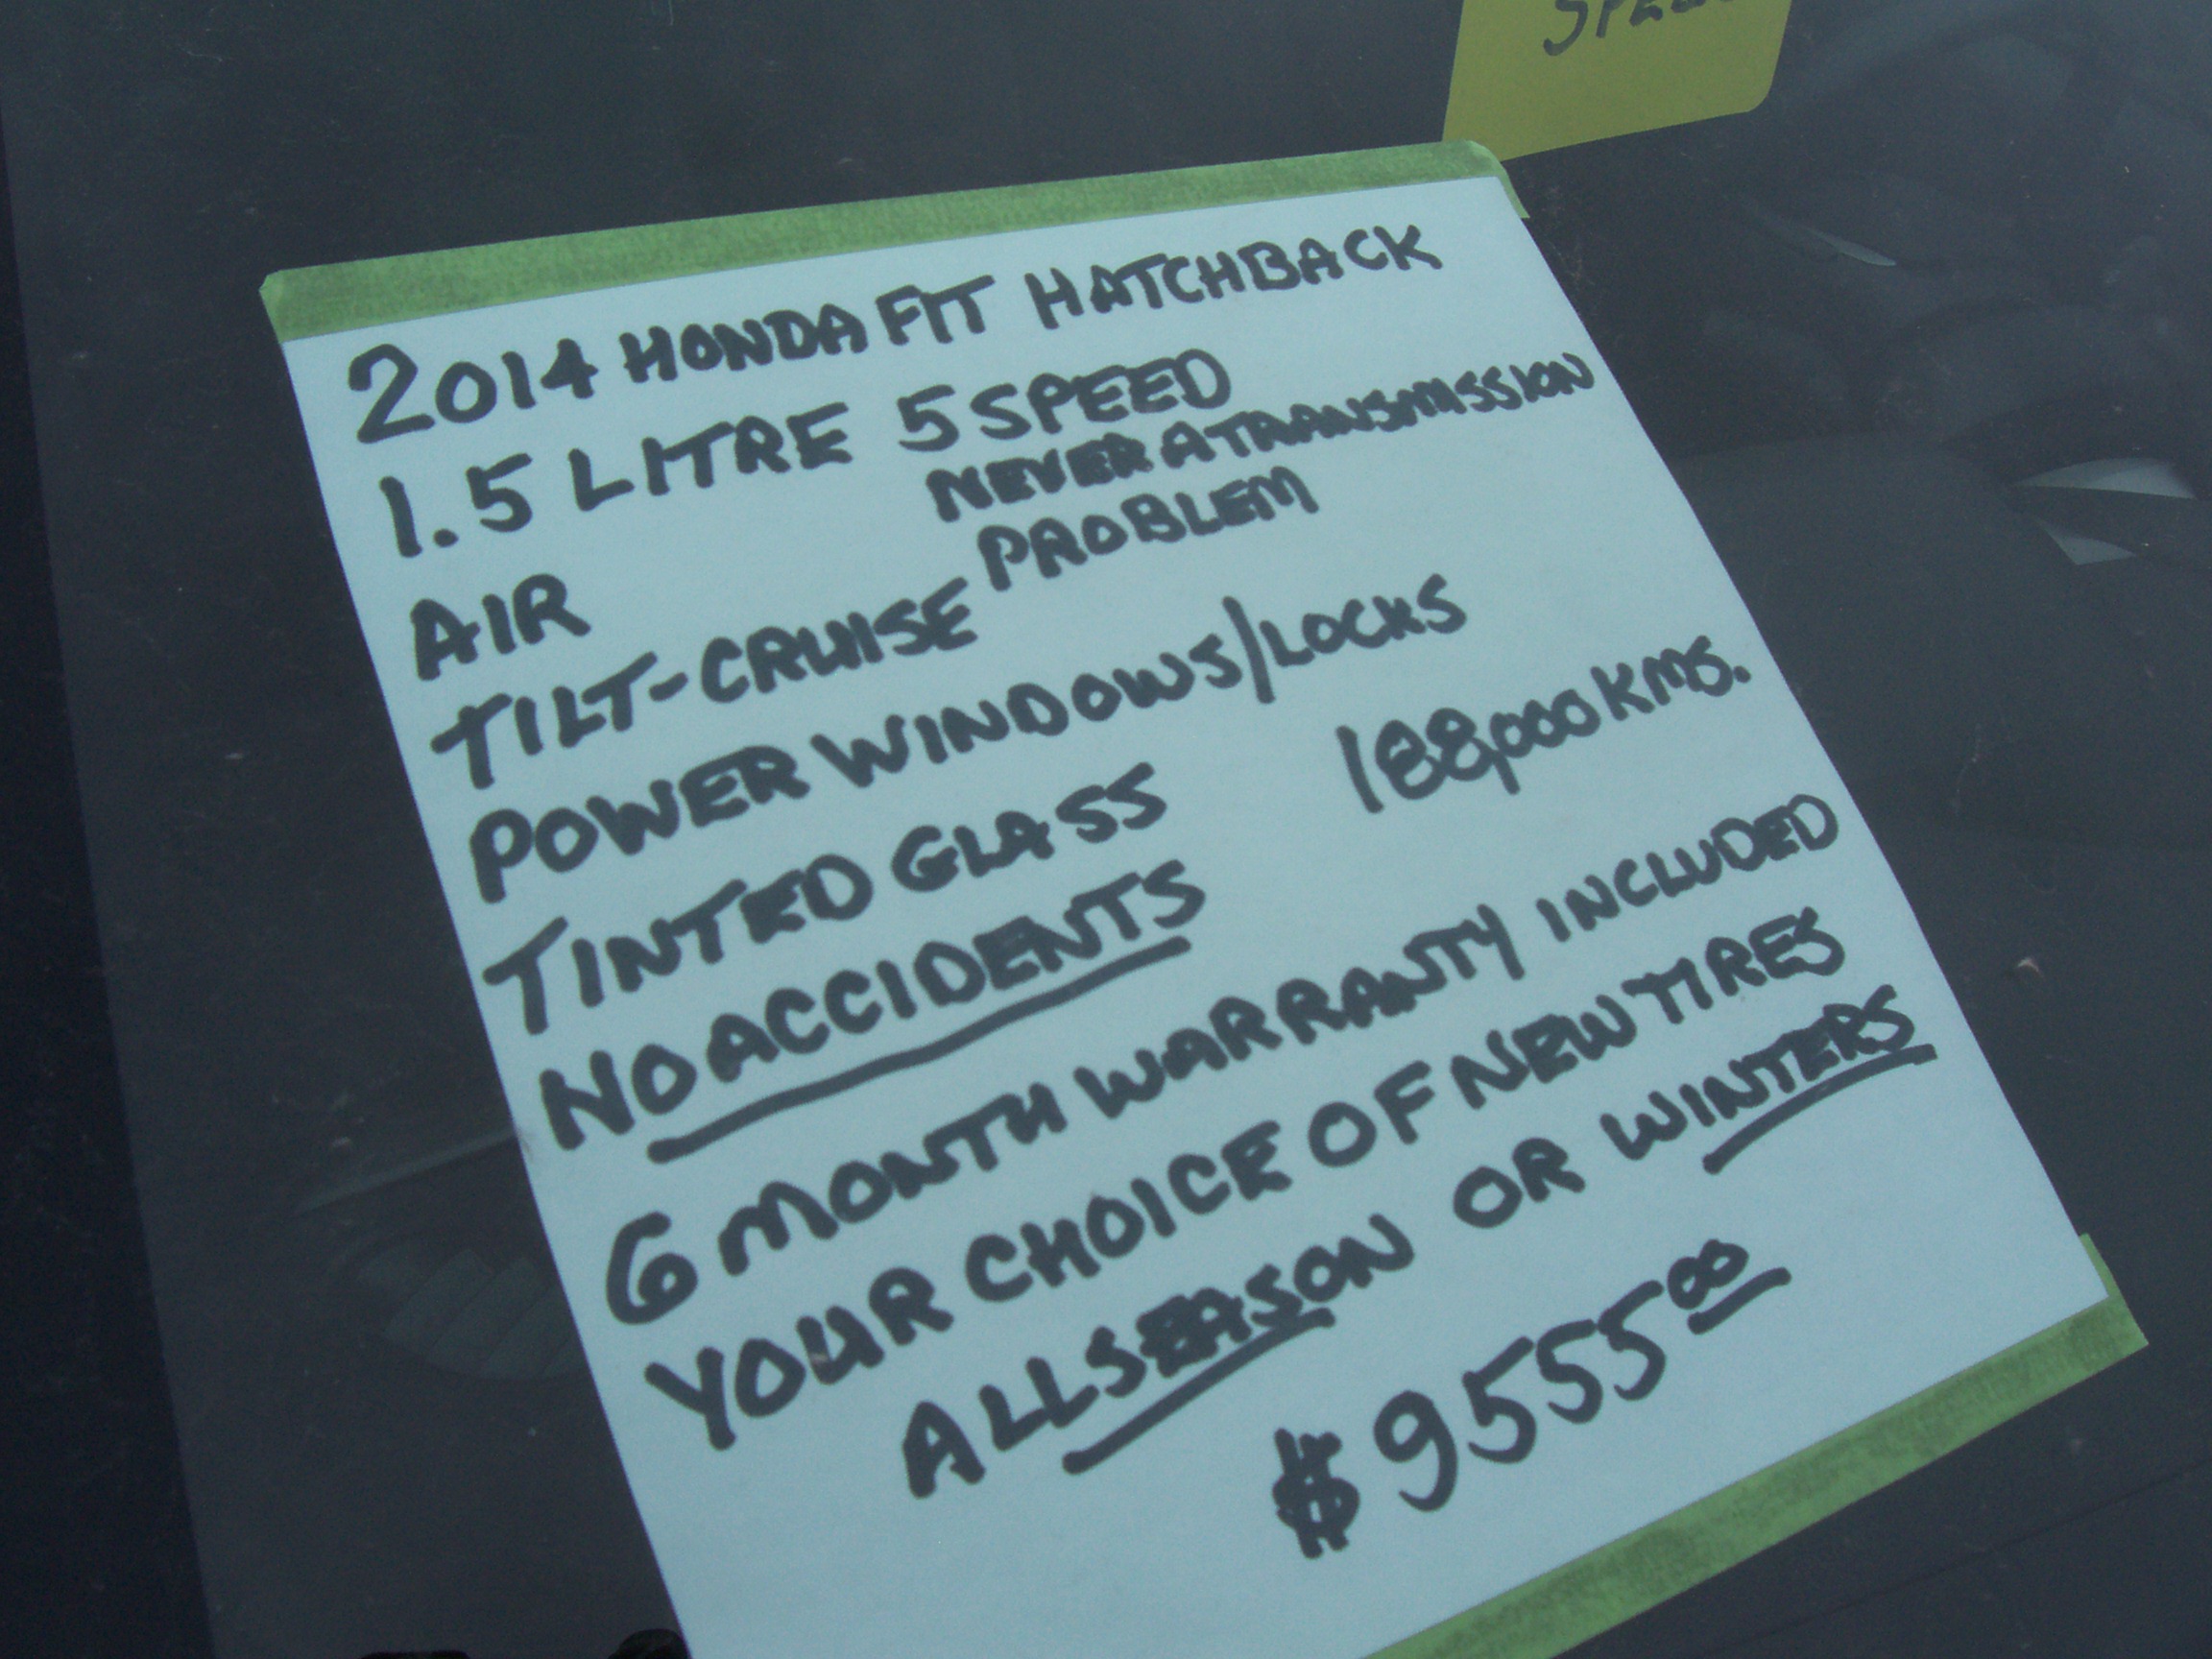 2014 HONDA FIT HATCHBACK
1.5 LITRE 5 SPEED
NEVER A TRANSMISSION
PROBLEM
AIR
TILT-CRUISE
POWER WINDOWS/LOCKS
TINTED GLASS
188,000 KMS.
NO ACCIDENTS
6 MONTH WARRANTY INCLUDED
YOUR CHOICE OF NEW TIRES
ALLSEASON OR WINTERS
$9555.00